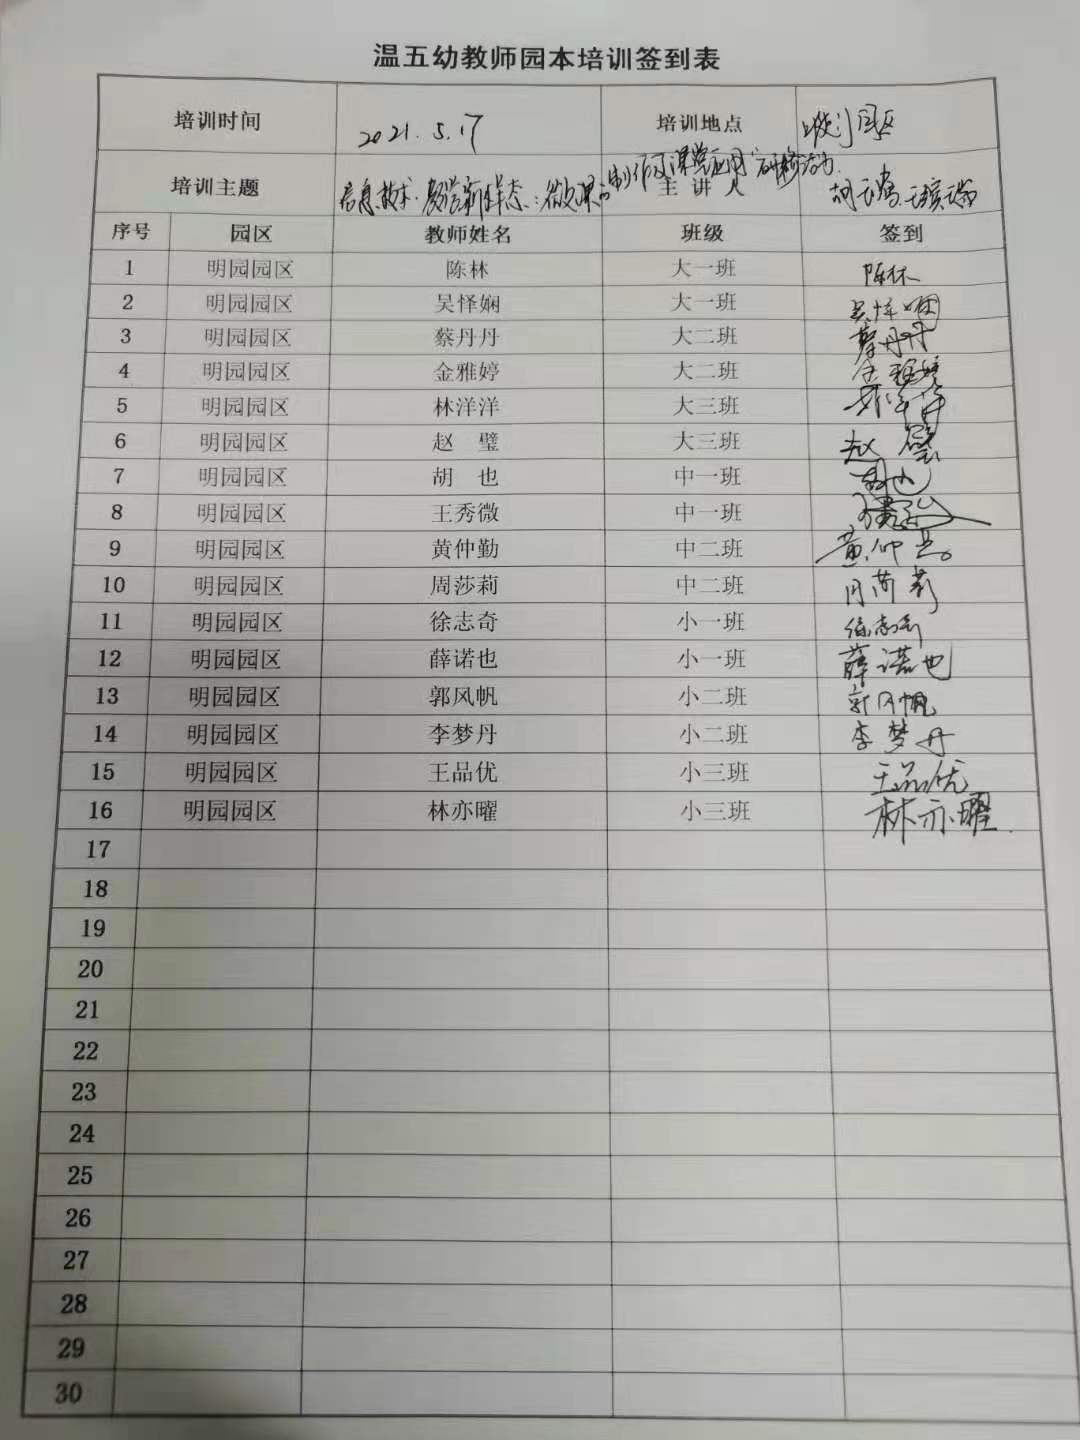 温五幼教师园本培训签到表
培训时间 2021.5.17 培训地点 园区
培训主题 信息技术·教学新样态:微课制作及课堂应用"研修活动. 主讲人 胡
序号 园区 教师姓名 班级 签到
1 明园园区 陈林 大一班 陈林
2 明园园区 吴怿娴 大一班 吴怿娴
3 明园园区 蔡丹丹 大二班 蔡丹丹
4 明园园区 金雅婷 大二班 金雅婷
5 明园园区 林洋洋 大三班
6 明园园区 赵 璧 大三班 赵璧
7 明园园区 胡 也 中一班 胡也
8 明园园区 王秀微 中一班
9 明园园区 黄仲勤 中二班 黄仲
10 明园园区 周莎莉 中二班 周莎莉
11 明园园区 徐志奇 小一班 徐志奇
12 明园园区 薛诺也 小一班 薛诺也
13 明园园区 郭风帆 小二班 郭风帆
14 明园园区 李梦丹 小二班 李梦丹
15 明园园区 王品优 小三班 王品优
16 明园园区 林亦曜 小三班 林亦曜
17
18
19
20
21
22
23
24
25
26
27
28
29
30